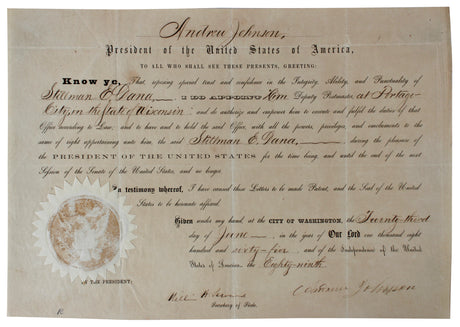 Andrew Johnson,
President of the United States of America,
TO ALL WHO SHALL SEE THESE PRESENTS, GREETING:
Know ye, That, reposing special trust and confidence in the Integrity, Ability, and Punctuality of
Stillman E. Dana, I DO APPOINT Him Deputy Postmaster, at Portage
City, in the State of Wisconsin; and do authorize and empower him to execute and fulfil the duties of that
Office according to Law; and to have and to hold the said Office, with all the powers, privileges, and emoluments to the
same of right appertaining unto him, the said Stillman E. Dana, during the pleasure of the
PRESIDENT OF THE UNITED STATES for the time being, and until the end of the next
Session of the Senate of the United States, and no longer.
In testimony whereof, I have caused these Letters to be made Patent, and the Seal of the United
States to be hereunto affixed.
Given under my hand, at the CITY OF WASHINGTON, the Twenty-third
day of June, in the year of Our Lord one thousand eight
hundred and sixty-five, and of the Independence of the United
States of America, the Eighty-ninth.
BY THE PRESIDENT:
Andrew Johnson
William H. Seward
Secretary of State.